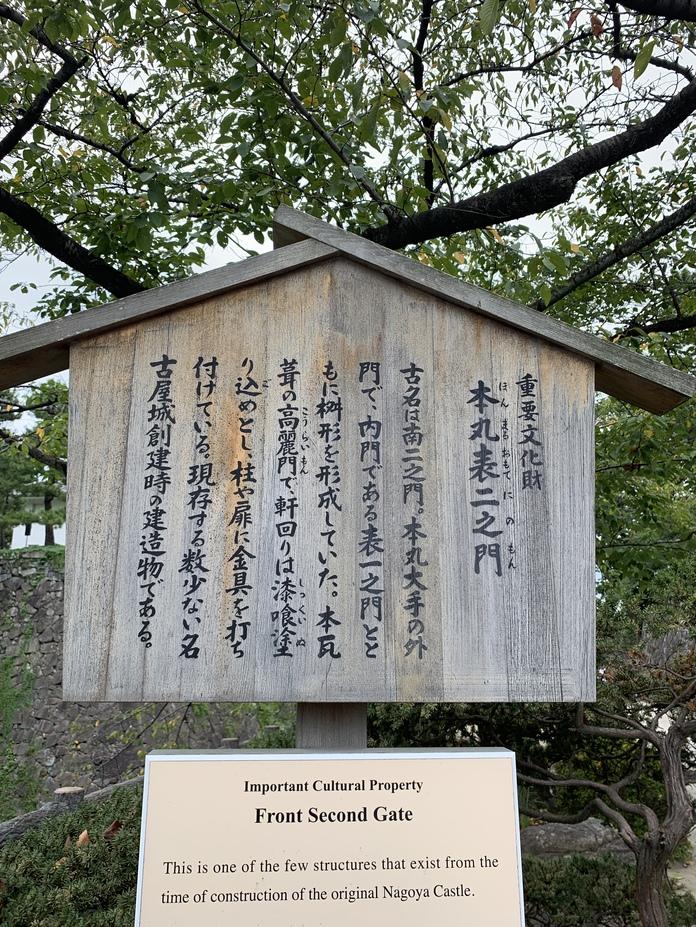 重要文化財
本丸表二之門
ほんまるおもてにのもん
古名は南二之門。本丸大手の外
門で、内門である表一之門とと
もに桝形を形成していた。本瓦
葺の高麗門で、軒回りは漆喰塗
こうらいもん
しっくいぬ
り込めとし、柱や扉に金具を打ち
こ
付けている。現存する数少ない名
古屋城創建時の建造物である。
Important Cultural Property
Front Second Gate
This is one of the few structures that exist from the
time of construction of the original Nagoya Castle.